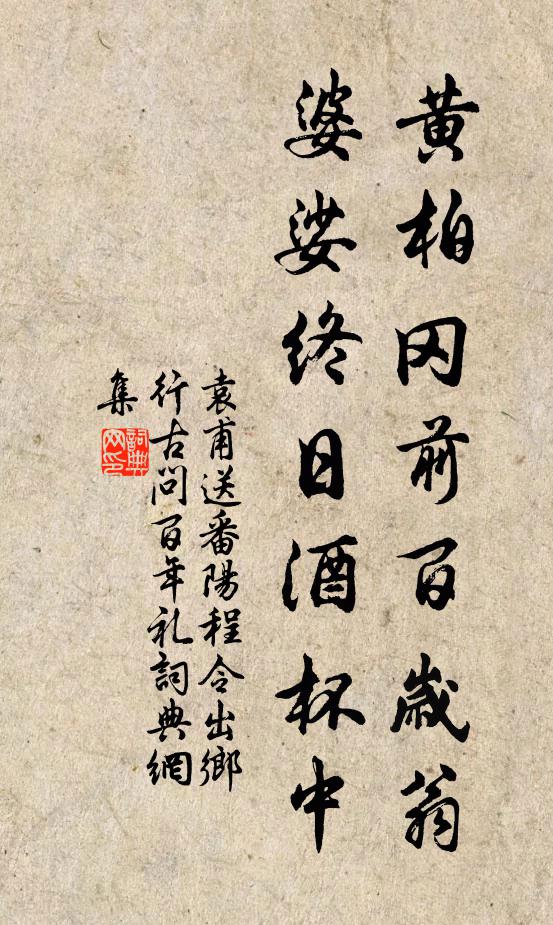 黄柏冈前百歲翁
婆娑終日酒杯中
袁甫送番陽程令出鄉
行古問百年礼詞典網
集
詞典
网印